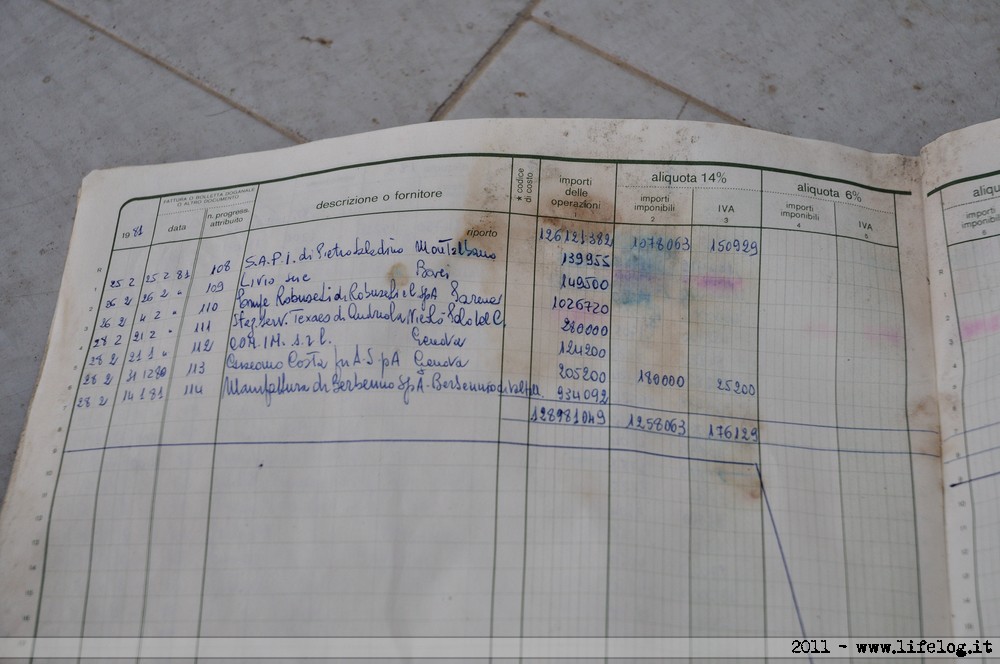 FATTURA O BOLLETTA DOGANALE
O ALTRO DOCUMENTO
1981 data n. progress. attribuito descrizione o fornitore * codice di costo importi delle operazioni 1 aliquota 14% importi imponibili 2 IVA 3 aliquota 6% importi imponibili 4 IVA 5
riporto 126121382 1078063 150929
25 2 25 2 81 108 S.A.P.I. di Pietro 139955
26 2 26 2 " 109 Livio 149500
26 2 4 2 " 110 Robuschi & C. SpA 1026720
28 2 21 2 " 111 Staz. Serv. Texaco di 280000
28 2 21 1 " 112 CO.A.IM. s.r.l. Genova 124200
28 2 31 12 80 113 Costa fu A. S.p.A Genova 205200 180000 25200
28 2 14 1 81 114 Manifattura di Berbenno SpA - Berbenno 934092
128981049 1258063 176129
importi
imponibili
2011 - www.lifelog.it